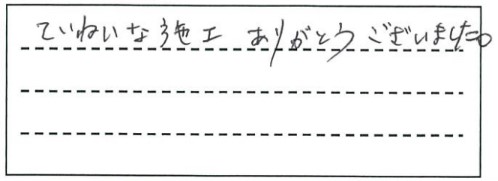 ていねいな施工 ありがとうございました。